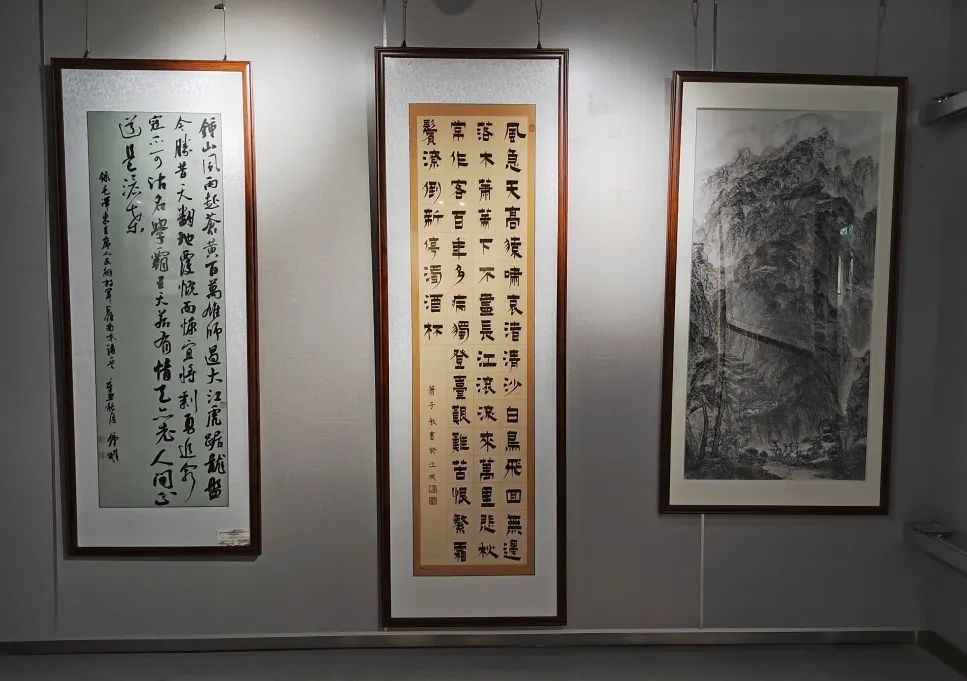 鍾山風雨起蒼黃百萬雄師過大江虎踞龍盤
今勝昔天翻地覆慨而慷宜將剩勇追窮
寇不可沽名學霸王天若有情天亦老人間正
道是滄桑
錄毛澤東主席人民解放軍南京詩
風急天高猿嘯哀渚清沙白鳥飛回無邊
落木蕭蕭下不盡長江滾滾來萬里悲秋
常作客百年多病獨登臺艱難苦恨繁霜
鬢潦倒新停濁酒杯
子秋書於江城